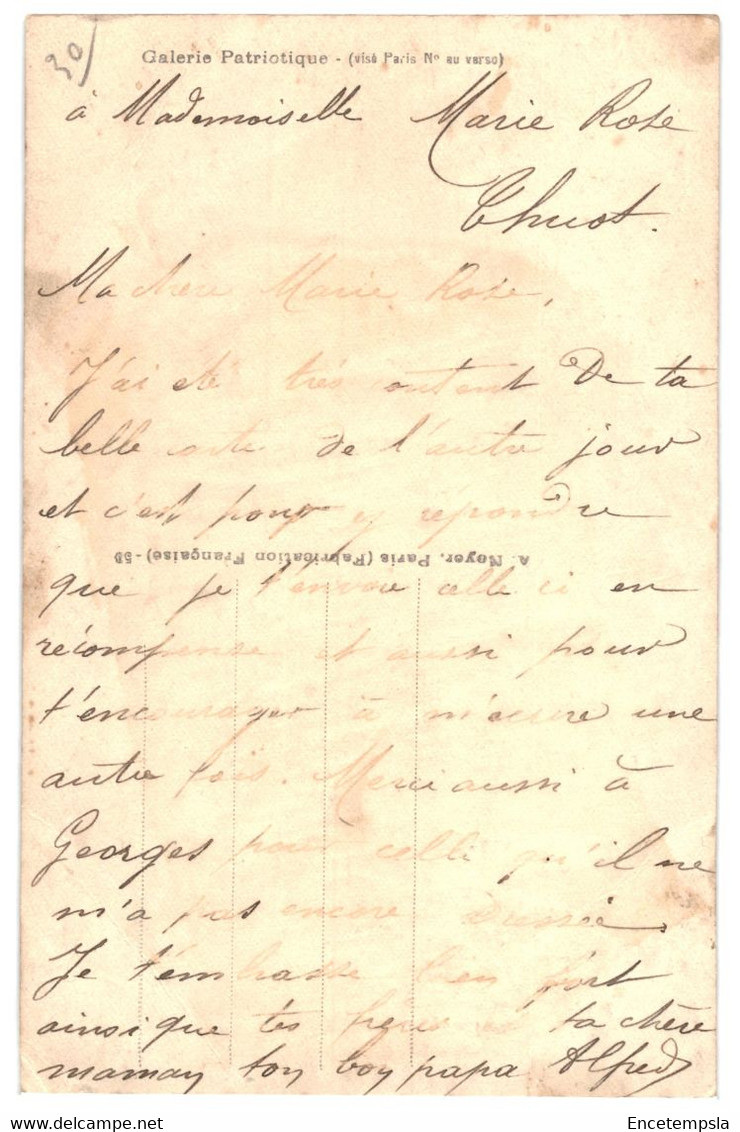 30
Galerie Patriotique - (visé Paris N° au verso)
à Mademoiselle Marie Rose
Thuot.
Ma chère Marie Rose,
J'ai été très content De ta
belle carte de l'autre jour
et c'est pour y répondre
A. Noyer, Paris (Fabrication Française) - 53
que je t'envoie celle ci en
récompense et aussi pour
t'encourager à m'écrire une
autre fois. Merci aussi à
Georges pour celle qu'il ne
m'a pas encore
Je t'embrasse bien fort
ainsi que tes frères et ta chère
maman ton bon papa Alfred
Encetempsla